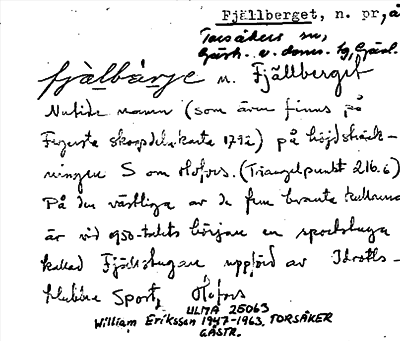 Fjällberget, n. pr, å
Torsåkers sn,
Gästr.- v. doms. tg, Gävl.
fjälbärje n. Fjällberget
Nutida namn (som även finns på
skogsdelnkarta 1792) på höjdsträck-
ningen S om Hofors. (Triangelpunkt 216.6)
På den västliga av de fem branta kullarna
är vid 950-talets början en sportstuga
kallad Fjällstugan uppförd av Idrotts-
klubben Sport, Hofors
ULMA 25063
William Eriksson 1947-1963. TORSÅKER
GÄSTR.